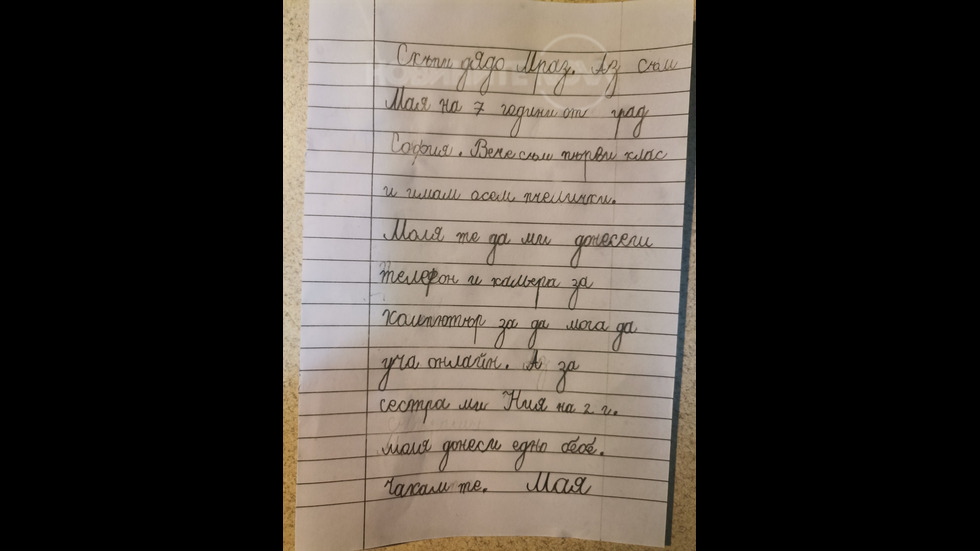 Скъпи дядо Мраз. Аз съм
Мая на 7 години от град
София. Вече съм първи клас
и имам осем пчелички.
Моля те да ми донесеш
телефон и камера за
компютър за да мога да
уча онлайн. А за
сестра ми Ния на 2 г.
моля донеси едно бебе.
Чакам те. Мая